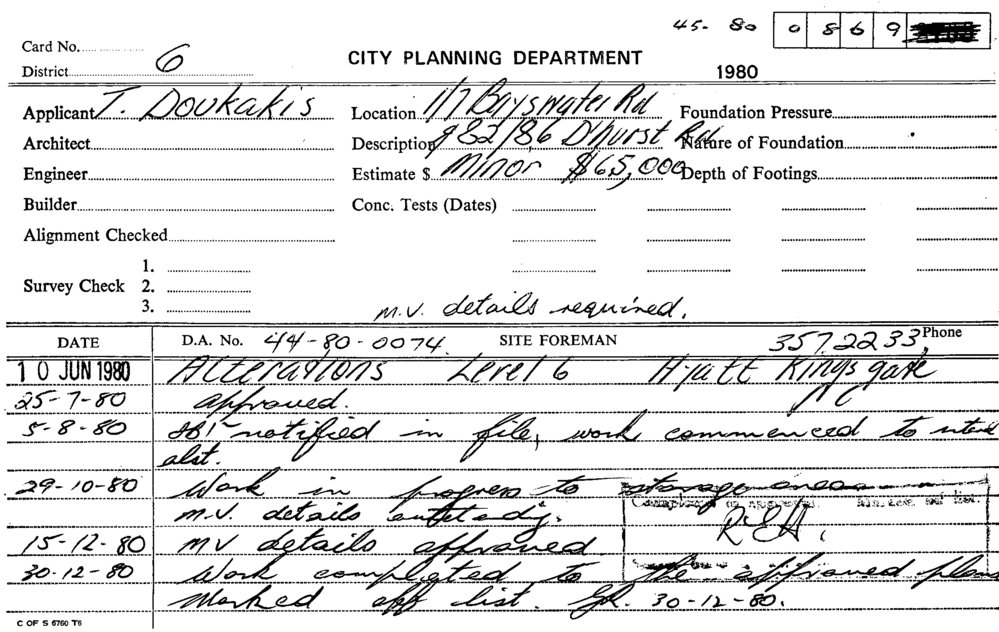 45-80 0869
Card No.
District 6
CITY PLANNING DEPARTMENT
1980
Applicant T. Doukakis
Location 1/7 Bayswater Rd
Foundation Pressure
Architect
Description & 82/86 D'hurst Rd
Nature of Foundation
Engineer
Estimate $ Minor $65,000
Depth of Footings
Builder
Conc. Tests (Dates)
Alignment Checked
Survey Check
1.
2.
3.
m.v. details required.
DATE
D.A. No. 44-80-0074
SITE FOREMAN
3572233, Phone
10 JUN 1980 Alterations Level 6 Hyatt Kingsgate
25-7-80 approved.
5-8-80 notified in file, work commenced to
alst.
29-10-80 Work in progress to storage areas
m.v. details
R
15-12-80 MV details approved
30-12-80 Work completed to the approved plans
Marked off list. 30-12-80.
C OF S 6760 T6